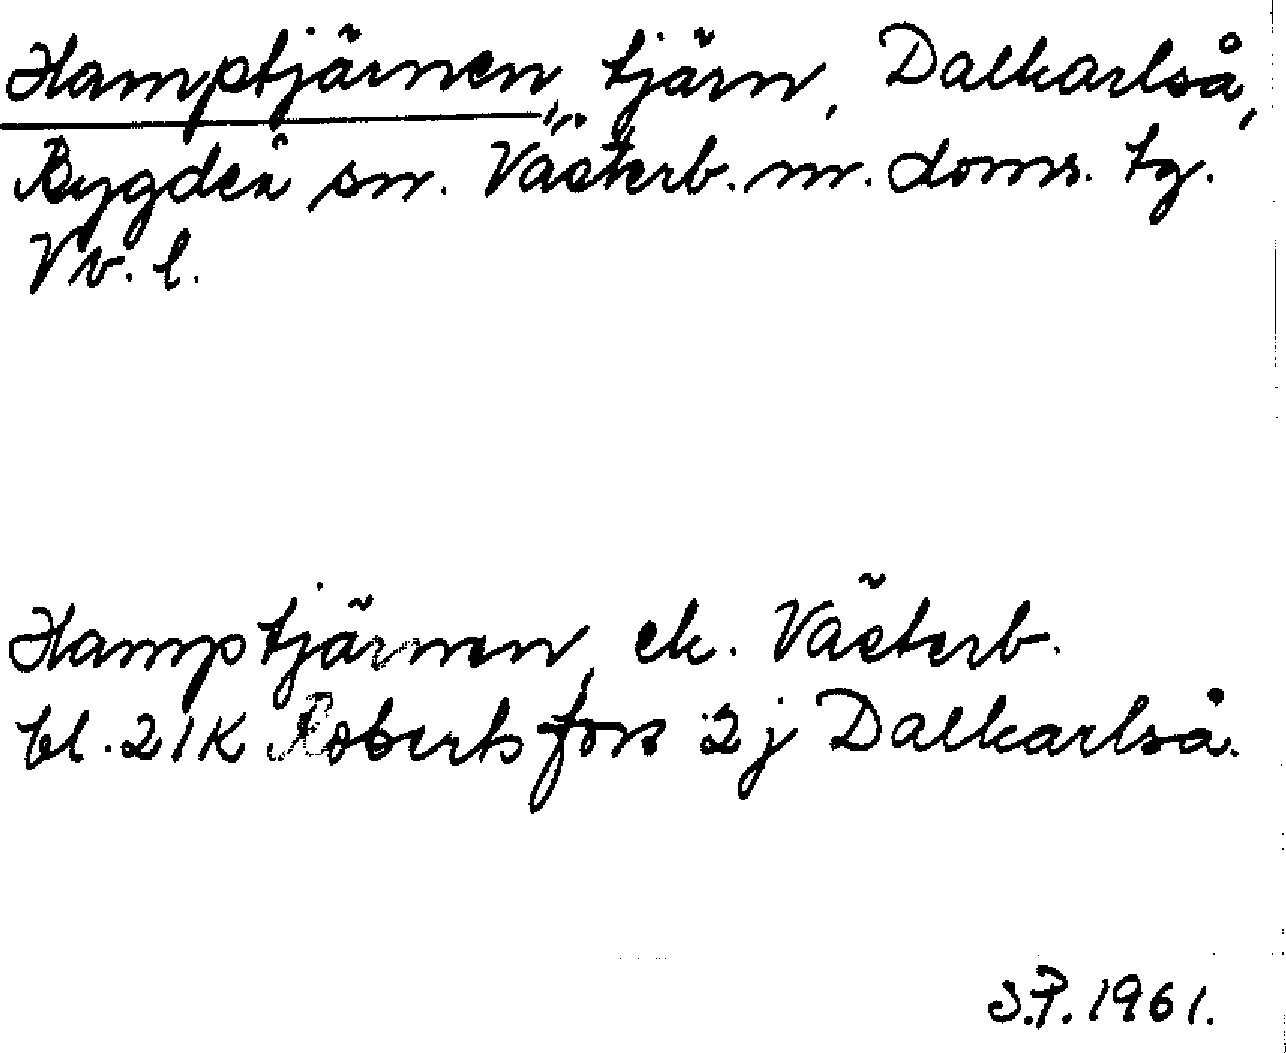 Hamptjärnen, tjärn, Dalkarlså,
Bygdeå sn. Västerb. m. doms. tg.
Vb. l.
Hamptjärnen, ek. Västerb.
bl. 21K Robertsfors 2j Dalkarlså.
S.P. 1961.